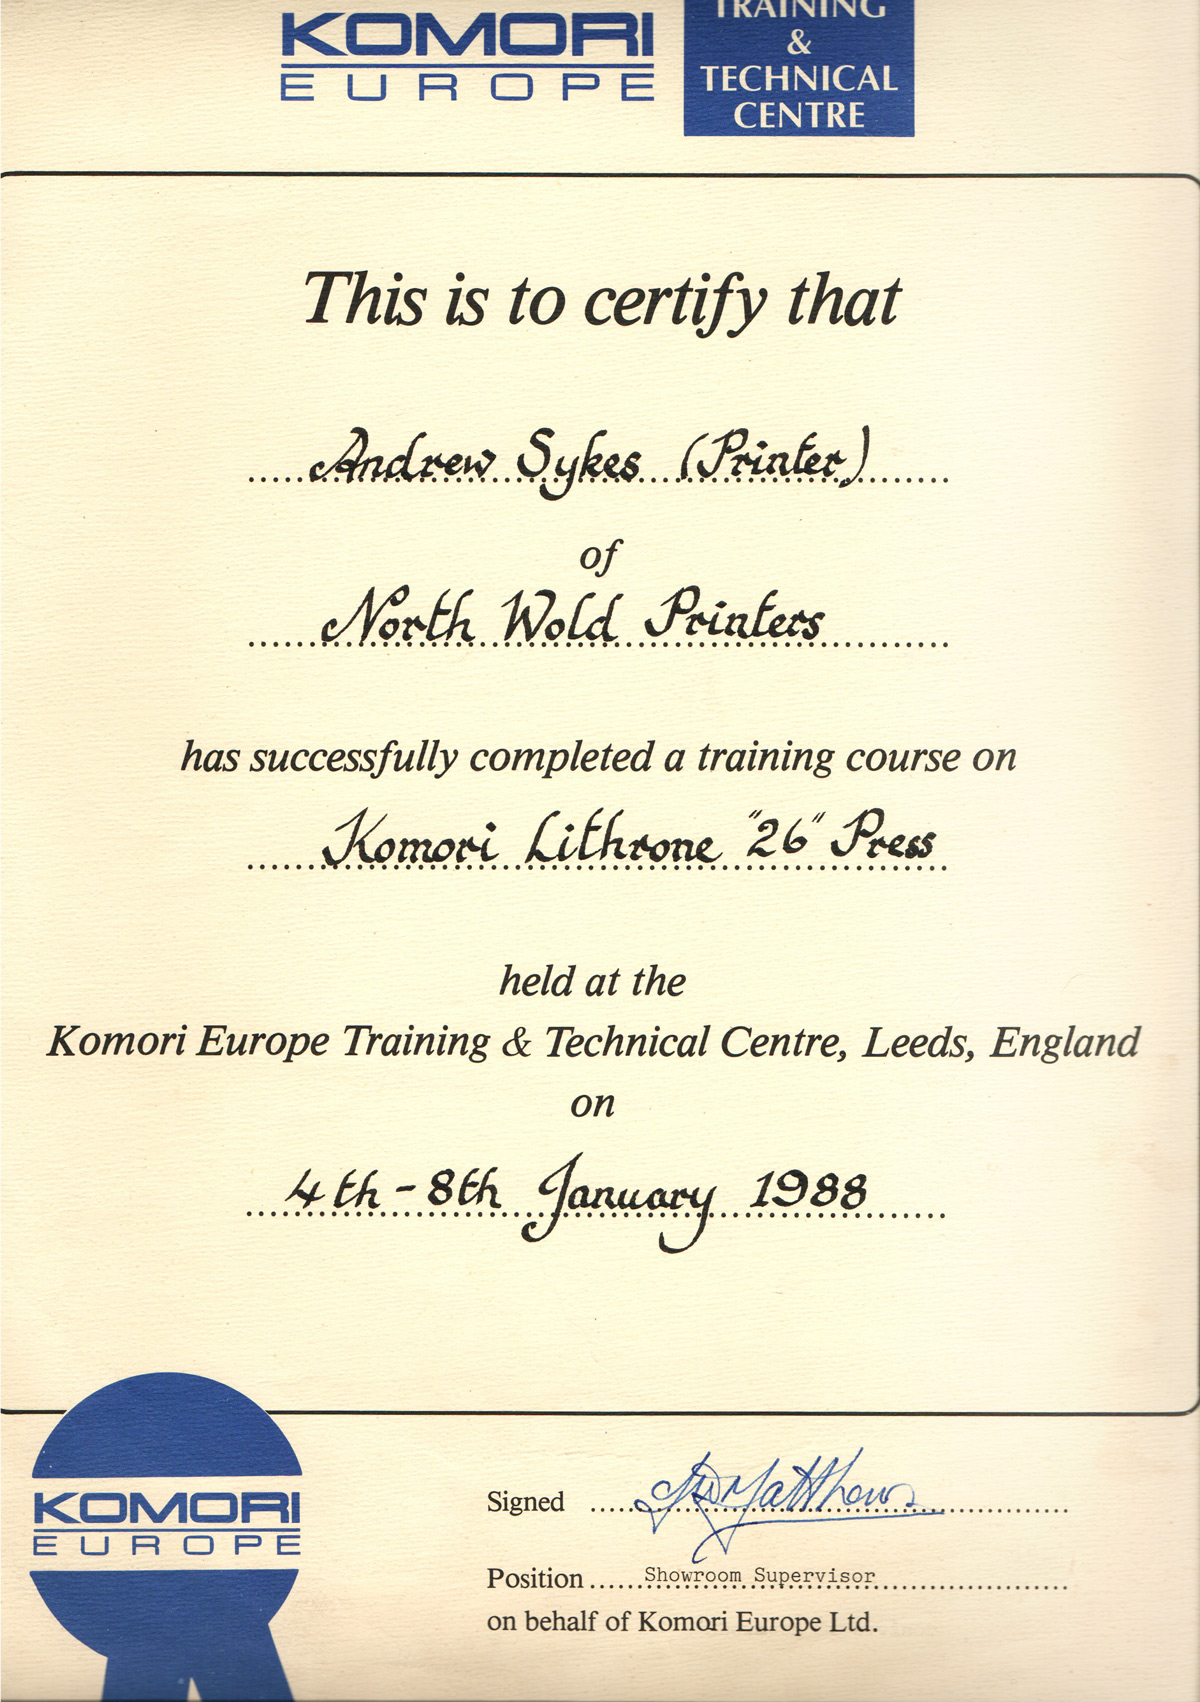 KOMORI
EUROPE
TRAINING
&
TECHNICAL
CENTRE
This is to certify that
Andrew Sykes (Printer)
of
North Wold Printers
has successfully completed a training course on
Komori Lithrone "26" Press
held at the
Komori Europe Training & Technical Centre, Leeds, England
on
4th - 8th January 1988
KOMORI
EUROPE
Signed Matthews
Position Showroom Supervisor
on behalf of Komori Europe Ltd.